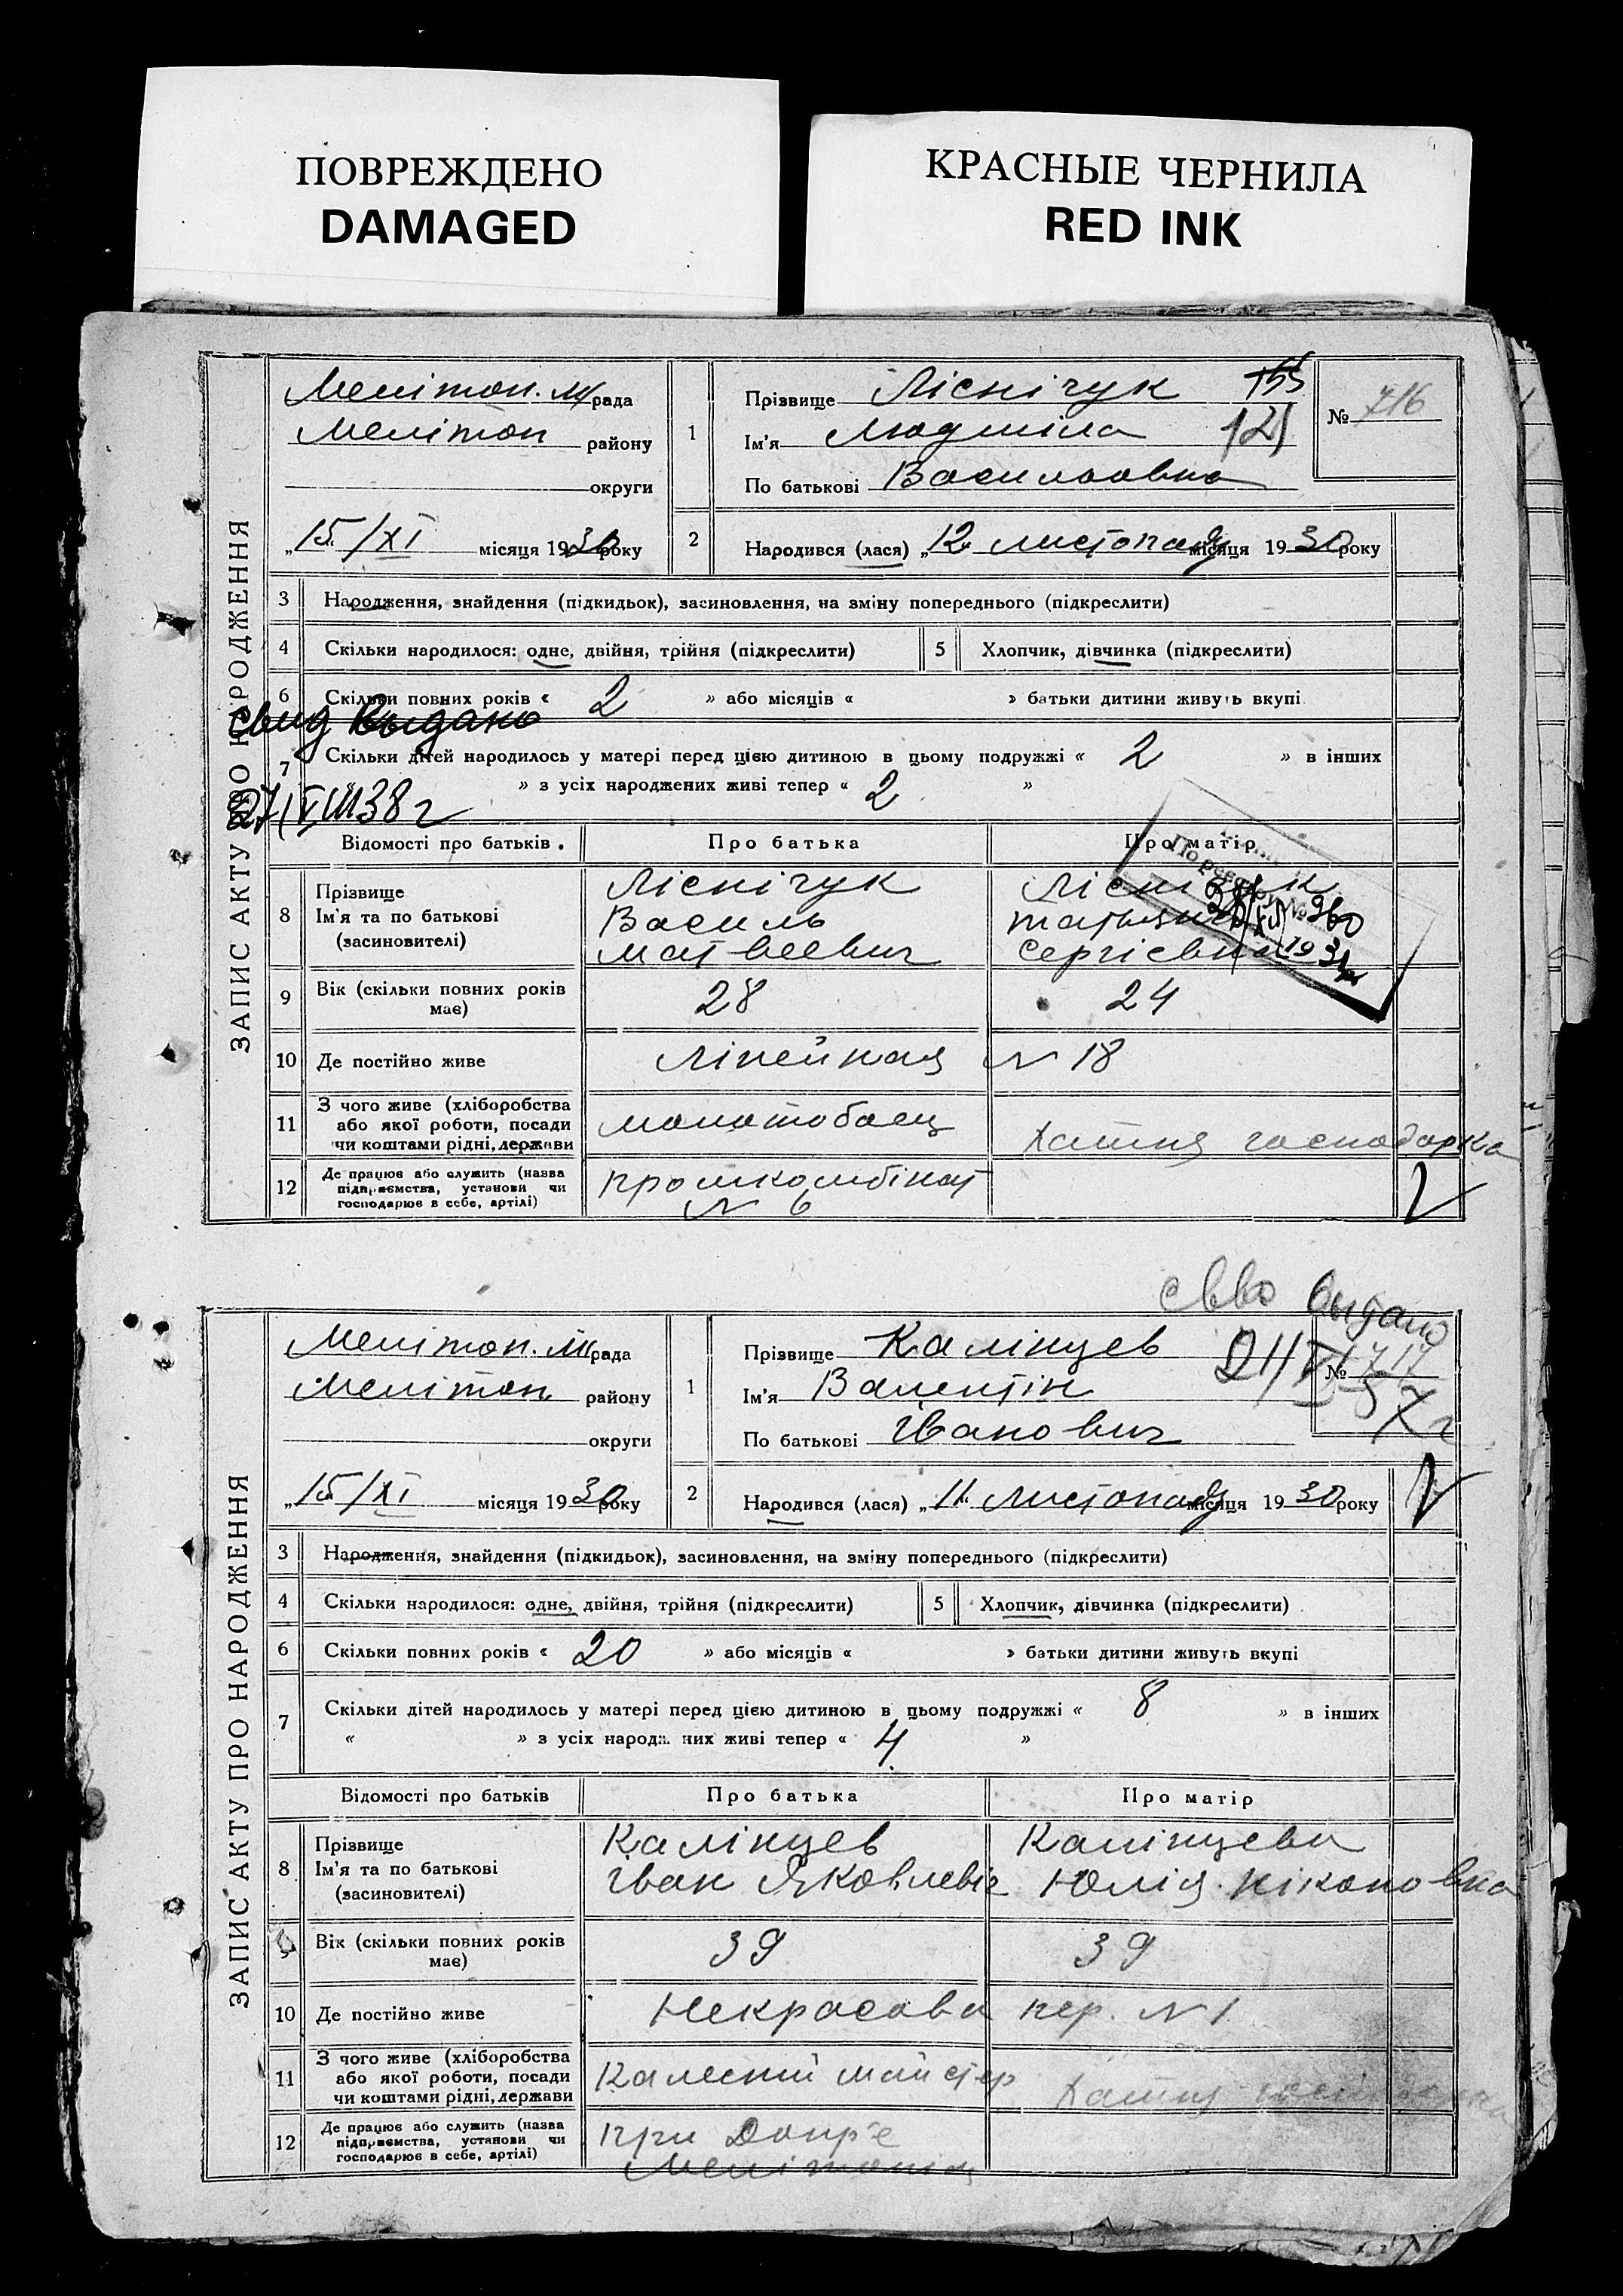 ПОВРЕЖДЕНО
DAMAGED
КРАСНЫЕ ЧЕРНИЛА
RED INK
ЗАПИС АКТУ ПРО НАРОДЖЕННЯ
Мелітоп. м/рада
Мелітоп району
округи
„15“/XI місяця 1930 року
1
Прізвище Ліснічук
Ім'я Людміла 121
По батькові Васильовна
№ 716
2
Народився (лася) „12“ листопада місяця 1930 року
3 Народження, знайдення (підкидьок), засиновлення, на зміну попереднього (підкреслити)
4 Скільки народилося: одне, двійня, трійня (підкреслити)
5 Хлопчик, дівчинка (підкреслити)
6 Скільки повних років « 2 » або місяців « » батьки дитини живуть вкупі
Свид выдано
7 Скільки дітей народилось у матері перед цією дитиною в цьому подружжі « 2 » в інших
» з усіх народжених живі тепер « 2 »
27/VIII 38 г
Відомості про батьків. Про батька Про матір
8 Прізвище Ім'я та по батькові (засиновителі)
Ліснічук
Василь
Матвеевич
Ліснічук
Татьяна
Сергієвна
По реєстру № 960
1931
9 Вік (скільки повних років має) 28 24
10 Де постійно живе Лінейная N 18
11 З чого живе (хліборобства або якої роботи, посади чи коштами рідні, держави
молотобоец хатня господарка
12 Де працює або служить (назва підприємства, установи чи господарює в себе, артілі)
промкомбінат
N 6
сво выдано
ЗАПИС АКТУ ПРО НАРОДЖЕННЯ
Мелітоп. м/рада
Мелітоп району
округи
„15“/XI місяця 1930 року
1
Прізвище Калінцев
Ім'я Валентін
По батькові Іванович
№ 717
2
Народився (лася) „11“ листопада місяця 1930 року
3 Народження, знайдення (підкидьок), засиновлення, на зміну попереднього (підкреслити)
4 Скільки народилося: одне, двійня, трійня (підкреслити)
5 Хлопчик, дівчинка (підкреслити)
6 Скільки повних років « 20 » або місяців « » батьки дитини живуть вкупі
7 Скільки дітей народилось у матері перед цією дитиною в цьому подружжі « 8 » в інших
« » з усіх народжених живі тепер « 4 »
Відомості про батьків Про батька Про матір
8 Прізвище Ім'я та по батькові (засиновителі)
Калінцев
Іван Яковлевіч
Калінцева
Юлія Ніконовна
9 Вік (скільки повних років має) 39 39
10 Де постійно живе Некрасова пер. N 1
11 З чого живе (хліборобства або якої роботи, посади чи коштами рідні, держави
майстер Хатня господарка
12 Де працює або служить (назва підприємства, установи чи господарює в себе, артілі)
при Допр'е